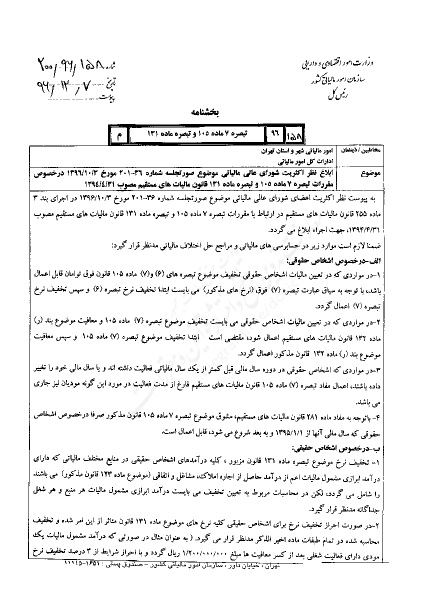 وزارت امور اقتصادی و دارایی
سازمان امور مالیاتی کشور
رئیس کل
شماره ۲۰۰/۹۶/۱۵۸
تاریخ ۹۶/۱۲/۷
پیوست
بخشنامه
۱۵۸ ۹۶ تبصره ۷ ماده ۱۰۵ و تبصره ماده ۱۳۱ م
مخاطبین/ ذینفعان
امور مالیاتی شهر و استان تهران
ادارات کل امور مالیاتی
موضوع
ابلاغ نظر اکثریت شورای عالی مالیاتی موضوع صورتجلسه شماره ۳۶-۲۰۱ مورخ ۱۳۹۶/۱۰/۳ درخصوص
مقررات تبصره ۷ ماده ۱۰۵ و تبصره ماده ۱۳۱ قانون مالیات های مستقیم مصوب ۱۳۹۴/۴/۳۱
به پیوست نظر اکثریت اعضای شورای عالی مالیاتی موضوع صورتجلسه ۳۶-۲۰۱ مورخ ۱۳۹۶/۱۰/۳ در اجرای بند ۳
ماده ۲۵۵ قانون مالیات های مستقیم در ارتباط با مقررات تبصره ۷ ماده ۱۰۵ و تبصره ماده ۱۳۱ قانون مالیات های مستقیم مصوب
۱۳۹۴/۴/۳۱، جهت اجراء ابلاغ می گردد.
ضمنا لازم است موارد زیر در حسابرسی های مالیاتی و مراجع حل اختلاف مالیاتی مدنظر قرار گیرد:
الف-درخصوص اشخاص حقوقی:
۱-در مواردی که در تعیین مالیات اشخاص حقوقی تخفیف موضوع تبصره های (۶) و(۷) ماده ۱۰۵ قانون فوق توامان قابل اعمال
باشد، با توجه به سیاق عبارت تبصره (۷) فوق (نرخ های مذکور) می بایست ابتدا تخفیف تبصره (۶) و سپس تخفیف نرخ
تبصره (۷) اعمال گردد.
۲-در مواردی که در تعیین مالیات اشخاص حقوقی می بایست تخفیف موضوع تبصره (۷) ماده ۱۰۵ و معافیت موضوع بند (ر)
ماده ۱۳۲ قانون مالیات های مستقیم اعمال شود، مقتضی است ابتدا تخفیف موضوع تبصره (۷) ماده ۱۰۵ و سپس معافیت
موضوع بند (ر) ماده ۱۳۲ قانون مذکور اعمال گردد.
۳-در مواردی که اشخاص حقوقی در دوره سال مالی قبل کمتر از یک سال مالیاتی فعالیت داشته اند و یا سال مالی خود را تغییر
داده باشند، اعمال مفاد تبصره (۷) ماده ۱۰۵ قانون مالیات های مستقیم فارغ از مدت فعالیت در مورد این گونه مودیان نیز جاری
می باشد.
۴-باتوجه به مفاد ماده ۲۸۱ قانون مالیات های مستقیم، مشوق موضوع تبصره ۷ ماده ۱۰۵ قانون مذکور صرفا درخصوص اشخاص
حقوقی که سال مالی آنها از ۱۳۹۵/۱/۱ و به بعد شروع می شود، قابل اعمال است.
ب-درخصوص اشخاص حقیقی:
۱- تخفیف نرخ موضوع تبصره ماده ۱۳۱ قانون مزبور ، کلیه درآمدهای اشخاص حقیقی در منابع مختلف مالیاتی که دارای
درآمد ابرازی مشمول مالیات اعم از درآمد حاصل از اجاره املاک، مشاغل و اتفاقی (موضوع ماده ۱۲۳ قانون مذکور) می باشند
را شامل می گردد، لکن در محاسبات مربوط به تعیین تخفیف می بایست درآمد ابرازی مشمول مالیات هر منبع و هر شغلی
جداگانه مدنظر قرار گیرد.
۲-در صورت احراز تخفیف نرخ برای اشخاص حقیقی کلیه نرخ های موضوع ماده ۱۳۱ قانون متاثر از این امر شده و تخفیف
محاسبه شده در تمام طبقات ماده اخیر الذکر مدنظر قرار می گیرد. ( به عنوان مثال در صورتی که درآمد مشمول مالیات یک
مودی دارای فعالیت شغلی بعد از کسر معافیت ها مبلغ ۱/۲۰۰/۰۰۰/۰۰۰ ریال گردد و با احراز شرایط از ۳ درصد تخفیف نرخ
تهران، خیابان داور ، سازمان امور مالیاتی کشور – صندوق پستی : ۱۶۵۱-۱۱۱۱۵